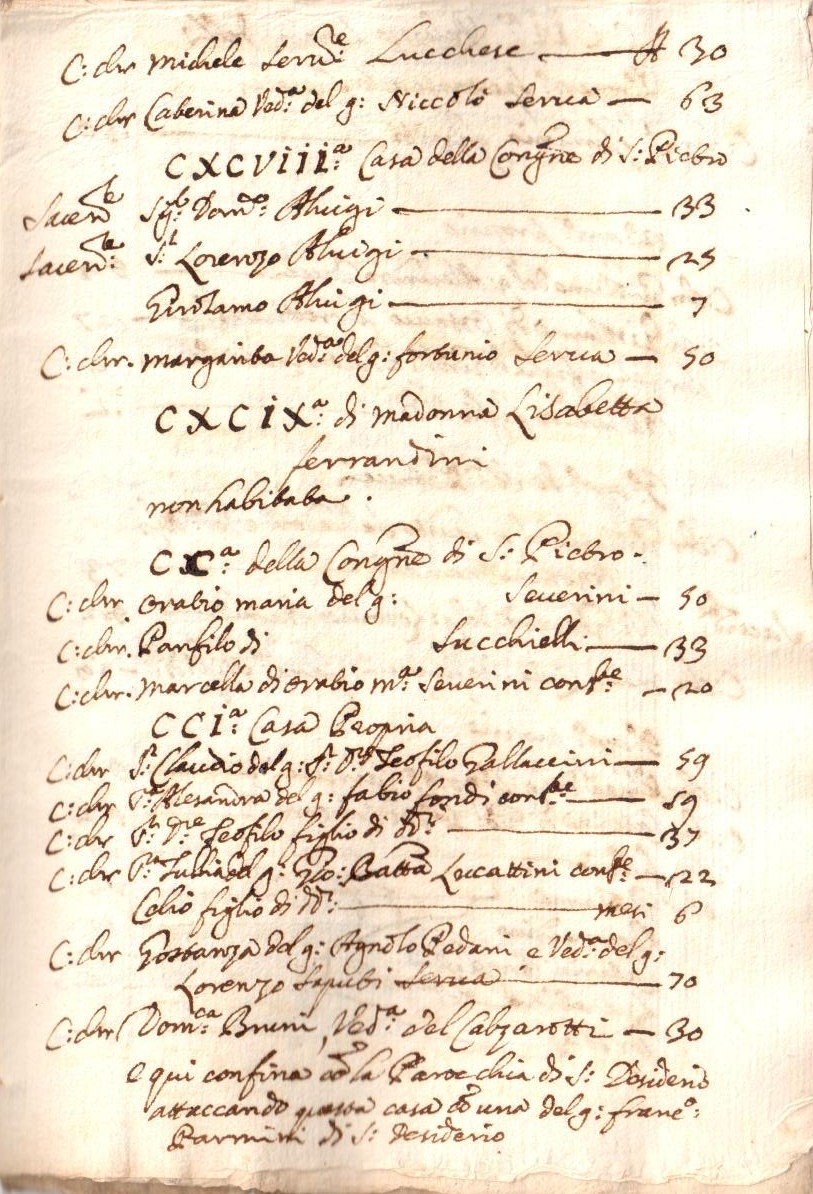 C: chr Michele Serv.e Lucchese — 30
C: chr Caterina Ved.a del q: Niccolò Serva — 63
CXCVIII.a Casa della Congne di S: Pietro
Sacer.te Sig.r Dom.o Aluigi — 33
Sacer.te S.r Lorenzo Aluigi — 25
Girolamo Aluigi — 7
C: chr. Margarita Ved.a del q: fortunio Serva — 50
CXCIX.a di Madonna Lisabetta
ferrandini
non habitata.
CXC.a della Congne di S: Pietro.
C: chr Oratio Maria del q: Severini — 50
C: chr. Panfilo di Lucchielli — 33
C: chr. Marcella di Oratio M.a Severini con.te — 20
CCI.a Casa Propria
C: chr S.r Claudio del q: S.r D.re Teofilo Gallaccini — 59
C: chr S.ra Alesandra del q: fabio fondi con.te — 59
C: chr S.r D.re Teofilo figlio di dd.i — 37
C: chr S.ra Tullia del q: Gio: Batta Luccattini con.te — 22
Celio figlio di dd.i — mesi 6
C: chr Gostanza del q: Agnolo Pedani e Ved.a del q:
Lorenzo Saputi Serva — 70
C: chr Dom.ca Bruni, Ved.a del Calzarotti — 30
e qui confina co la Parocchia di S: Desiderio
attaccando questa casa co una del q: franc.o:
Parmini di S: Desiderio